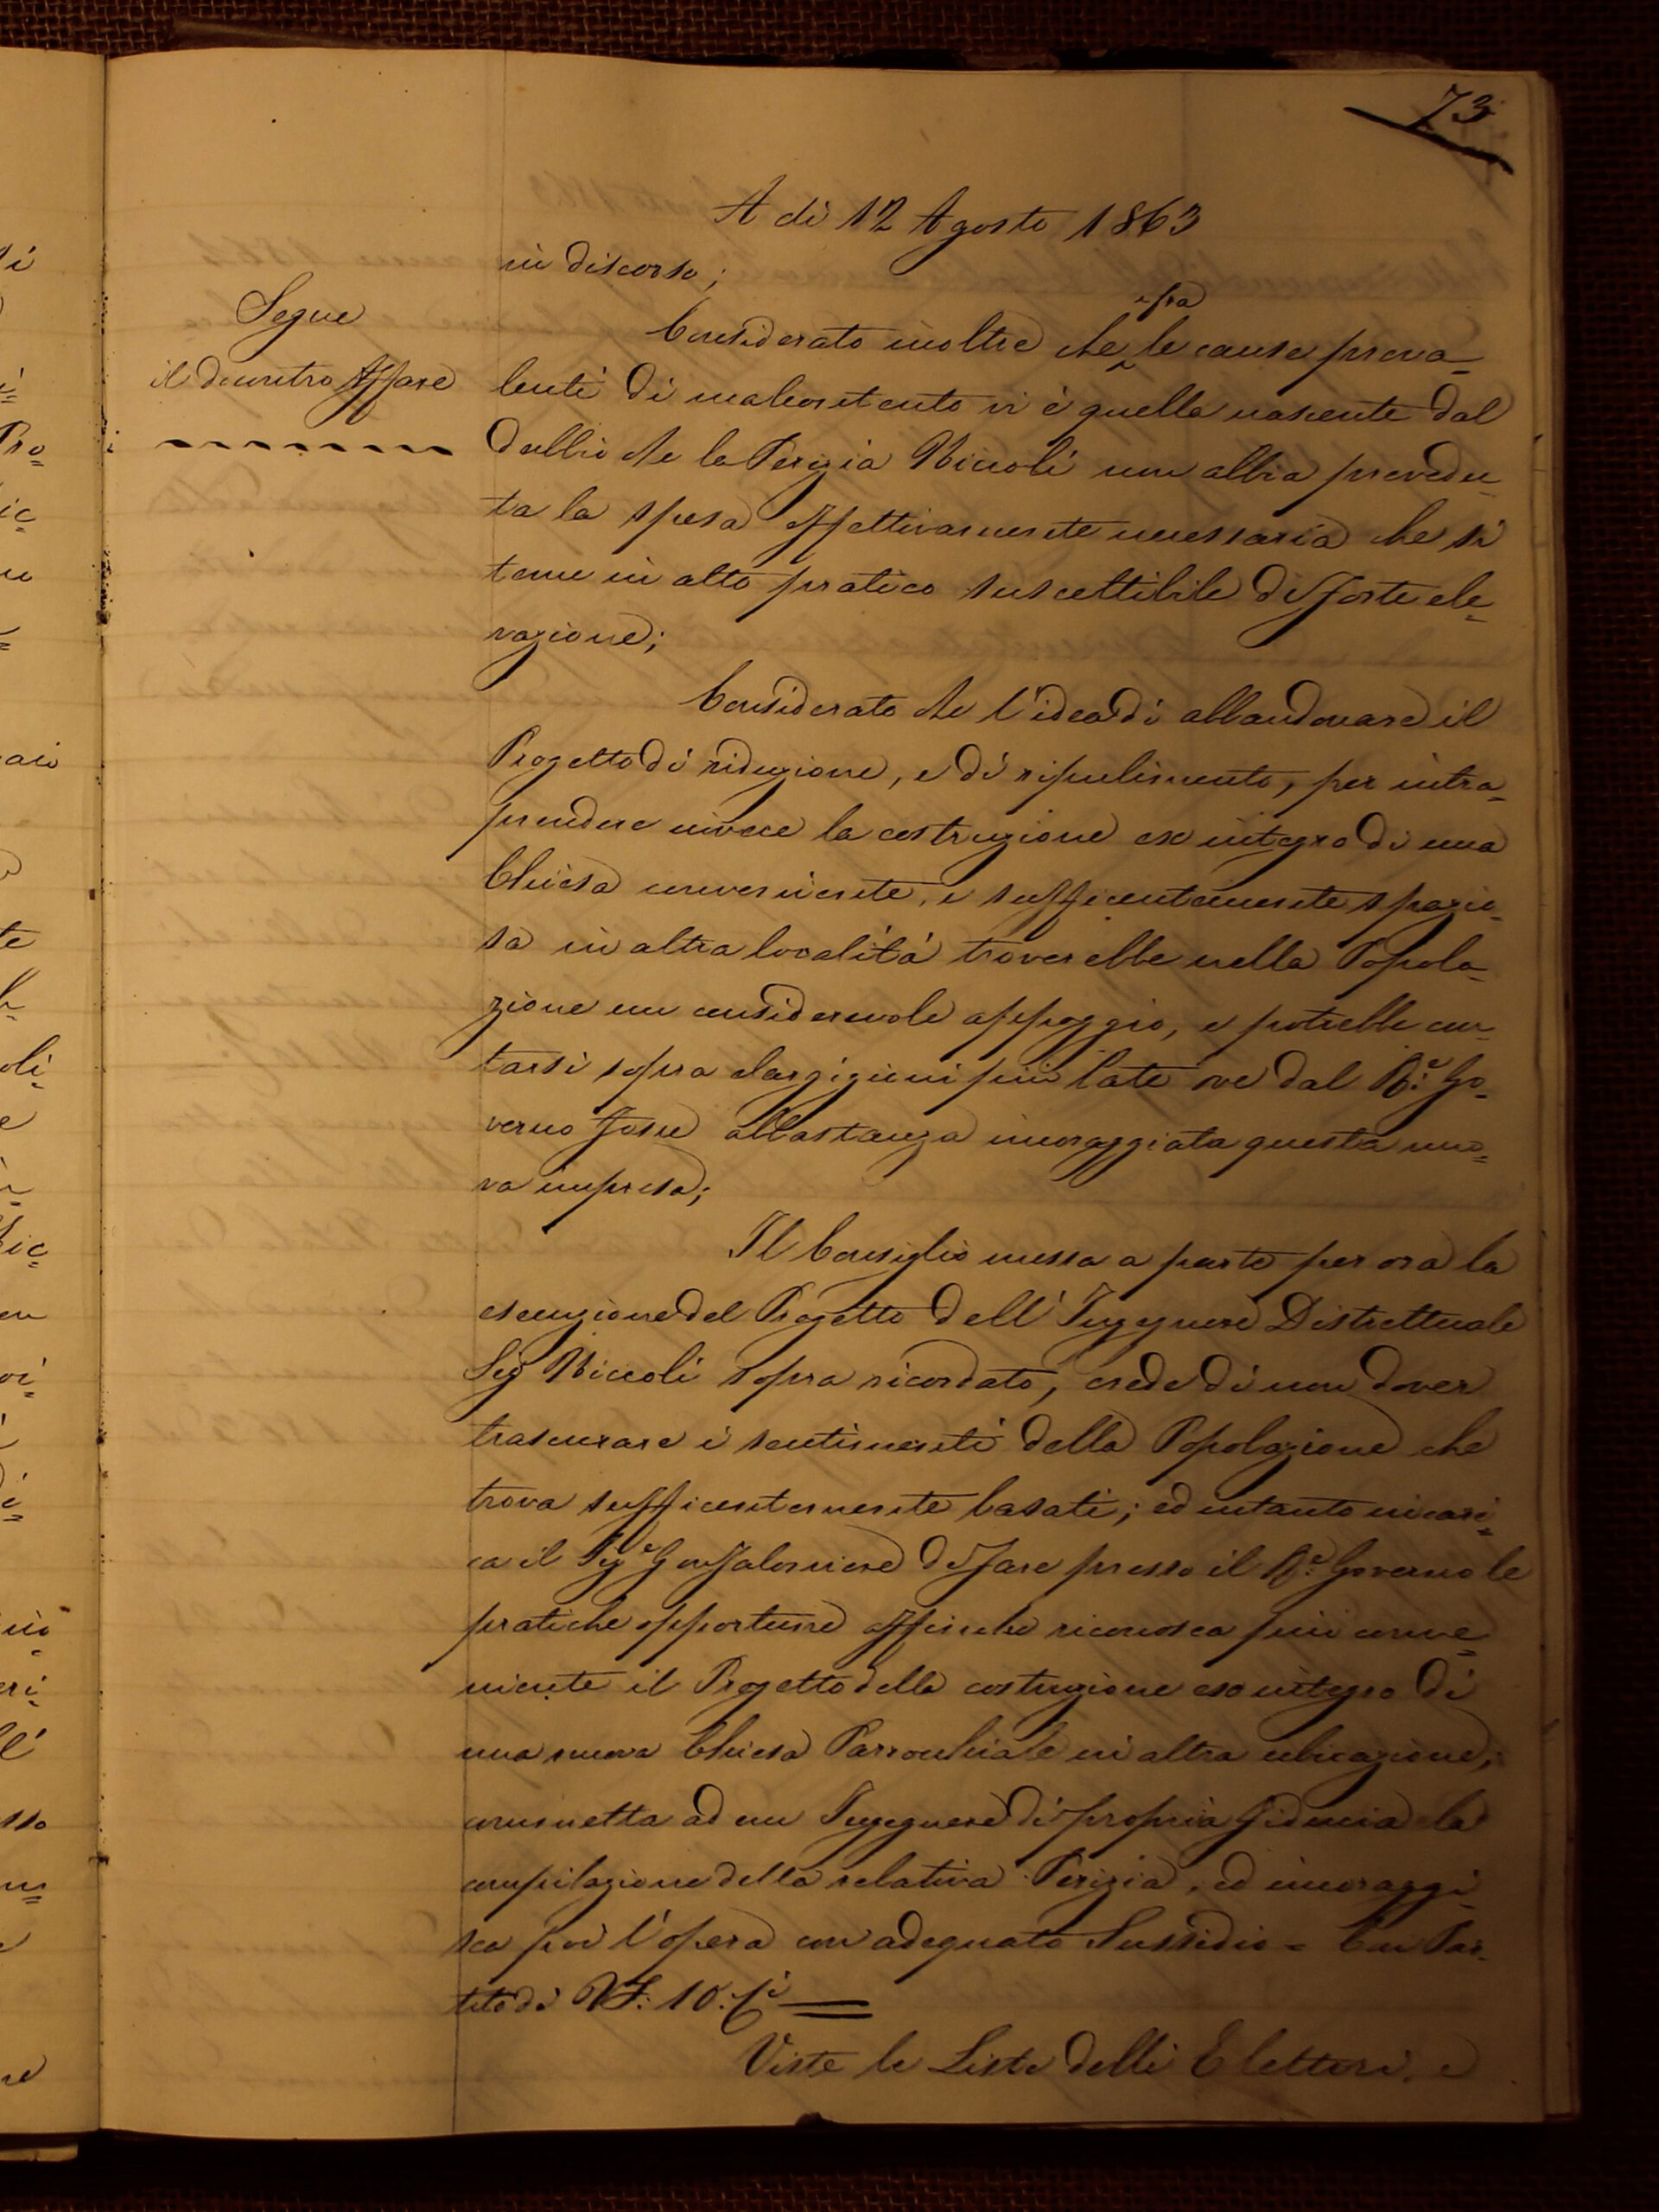 73
A dì 12 Agosto 1863
in discorso;
Segue
il decontro Affare
Considerato inoltre che fra le cause preva=
lenti di malcontento vi è quella nascente dal
dubbio che la Perizia Niccoli non abbia prevedu=
ta la spesa effettivamente necessaria che si
teme in atto pratico suscettibile di forte ele=
vazione;
Considerato che l'idea di abbandonare il
Progetto di riduzione, e di ripulimento, per intra=
prendere invece la costruzione ex integro di una
Chiesa conveniente, e sufficentemente spazio=
sa in altra località troverebbe nella Popola=
zione un considerevole appoggio, e potrebbe con=
tarsi sopra elargizioni più late ove dal R.º Go=
verno fosse abbastanza incoraggiata questa nuo=
va impresa;
Il Consiglio messa a parte per ora la
esecuzione del Progetto dell'Ingegnere Distrettuale
Sig Niccoli sopra ricordato, crede di non dover
trascurare i sentimenti della Popolazione che
trova sufficentemente basati; ed intanto incari=
ca il Sig.e Gonfaloniere di fare presso il R.º Governo le
pratiche opportune affinche riconosca più conve=
niente il Progetto della costruzione ex integro di
una nuova Chiesa Parrochiale in altra ubicazione,
commetta ad un Ingegnere di propria fiducia la
compilazione della relativa Perizia, ed incoraggi=
sca poi l'opera con adeguato Sussidio = Con Par=
tito di Vf: 10.
Viste le Liste delli Elettori, e